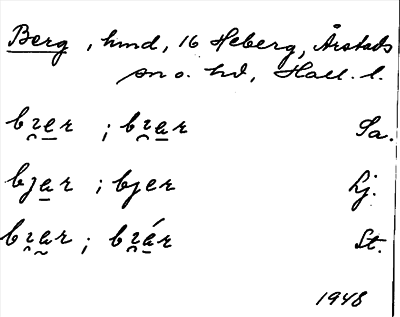 Berg, hmd, 16 Heberg, Årstads
sn o. hd, Hall. l.
bɿ̯e̠r ; bɿ̯a̠r Sa.
bja̠r ; bjer Lj.
bɿ̯a̰r ; bɿ̯á̠r St.
1948